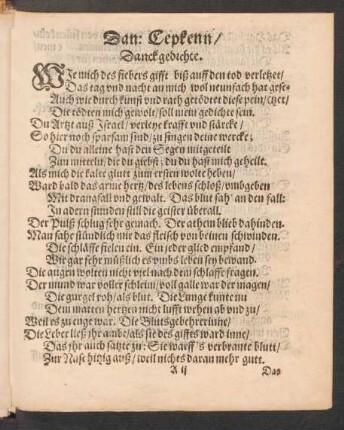 Dan: Cepkenn/
Danckgedichte.
WIe mich des fiebers gifft biß auff den tod verletzet/
Das tag vnd nacht an mich wol neunfach hat gese-
Auch wie durch kunst vnd rath getödtet diese pein/ (tzet/
Die tödten mich gewolt/ soll mein gedichte sein.
Du Artzt auß Israel/ verleye krafft vnd stärcke/
So hier noch sparsam sind/ zu singen deine wercke;
Du du alleine hast den Segen mitgeteilt
Zun mitteln/ die du giebst; du du hast mich geheilt.
Als mich die kalte glutt zum ersten wolte heben/
Ward bald das arme hertz/ des lebens schloß/ vmbgeben
Mit drangsall vnd gewalt. Das blut sah' an den fall:
In adern stunden still die geister überall.
Der Pulß schlug sehr gemach. Der athem blieb dahinden.
Man sahe stündlich mir das fleisch von beinen schwinden.
Die schläffe fielen ein. Ein jeder glied empfand/
Wie gar sehr mißlich es vmbs leben sey bewand.
Die augen wolten nicht viel nach dem schlaffe fragen.
Der mund war voller schleim/ voll galle war der magen/
Die gurgel roh/ als blut. Die Lunge kunte nu
Dem matten hertzen nicht lufft wehen ab vnd zu/
Weil es zu enge war. Die Blutsgebehrerinne/
Die Leber ließ ihr ambt/ als sie des gifftes ward inne/
Das ihr auch satzte zu: Sie warff's verbrante blutt/
Zur Nase hitzig auß/ weil nichts daran mehr gutt.
A ij Das